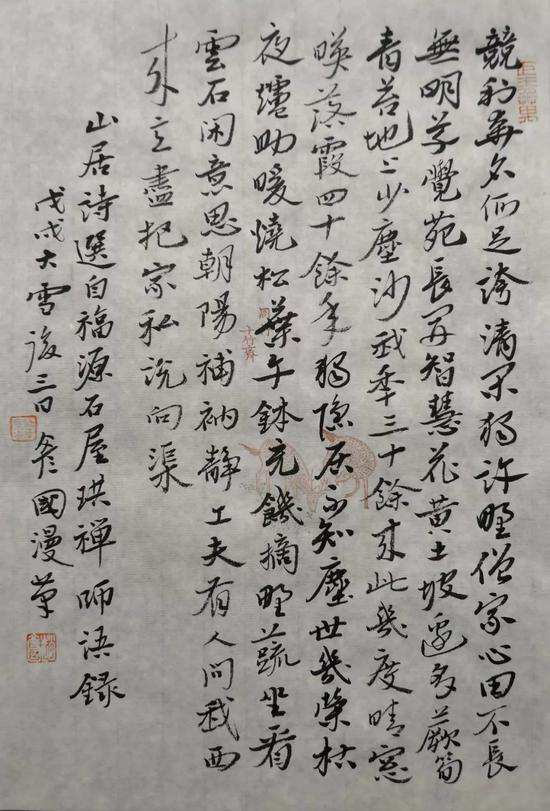 競利奔名何足誇清閑獨許野僧家心田不長
無明草覺苑長開智慧花黃土坡邊多蕨筍
青苔地上少塵沙我年三十餘來此幾度晴窗
映落霞四十餘年獨隱居不知塵世幾榮枯
夜爐助暖燒松葉午鉢充饑摘野蔬坐看
雲石閑意思朝陽補衲靜工夫有人問我西
來意盡把家私說向渠
山居詩選自福源石屋珙禪師語錄
戊戌大雪後三日國漫